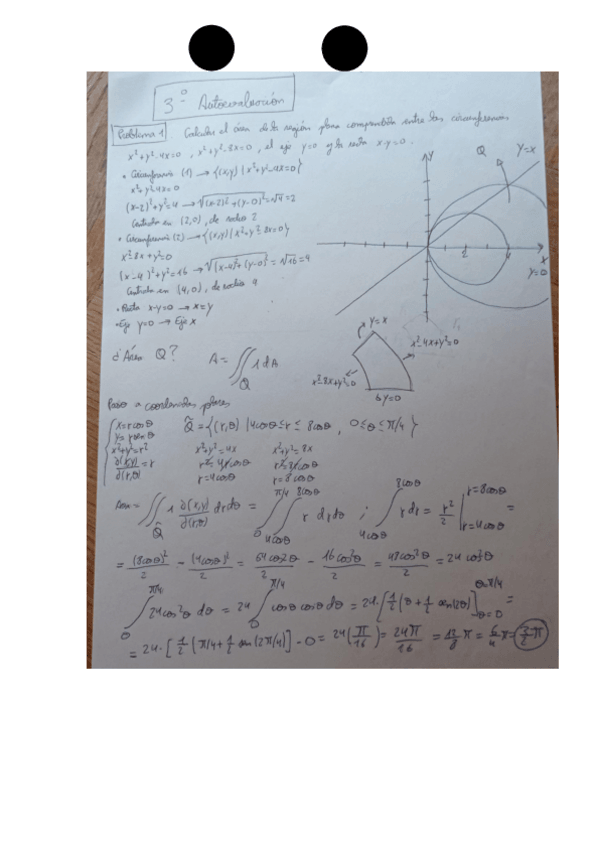 3º Autoevaluación
Problema 1 Calcular el área de la región plana comprendida entre las circunferencias
x²+y²-4x=0, x²+y²-8x=0, el eje y=0 y la recta x-y=0.
• Circunferencia (1) → {(x,y) | x²+y²-4x=0}
x²+y²-4x=0
(x-2)²+y²=4 → √(x-2)²+(y-0)²=√4=2
Centrada en (2,0), de radio 2
• Circunferencia (2) → {(x,y) | x²+y²-8x=0}
x²-8x+y²=0
(x-4)²+y²=16 → √(x-4)²+(y-0)²=√16=4
Centrada en (4,0), de radio 4
• Recta x-y=0 → x=y
• Eje y=0 → Eje x
y
Q
y=x
2
4
x
y=0
¿Área Q? A=∬ 1 dA
Q
y=x
x²-4x+y²=0
x²-8x+y²=0
y=0
Paso a coordenadas polares
x=r cosθ
y=r senθ
x²+y²=r²
∂(x,y)/∂(r,θ)=r
Q̃={(r,θ) | 4cosθ≤r≤8cosθ, 0≤θ≤π/4}
x²+y²=4x x²+y²=8x
r²=4r cosθ r²=8r cosθ
r=4cosθ r=8cosθ
Area=∬ 1 ∂(x,y)/∂(r,θ) drdθ = ∫ 0 π/4 ∫ 4cosθ 8cosθ r drdθ ; ∫ 4cosθ 8cosθ r dr = r²/2 | r=8cosθ r=4cosθ =
Q̃
= (8cosθ)²/2 - (4cosθ)²/2 = 64cos²θ/2 - 16cos²θ/2 = 48cos²θ/2 = 24cos²θ
∫ 0 π/4 24cos²θ dθ = 24 ∫ 0 π/4 cosθ cosθ dθ = 24·[1/2(θ+1/2 sen(2θ)] θ=π/4 θ=0 =
= 24·[1/2(π/4+1/2 sen(2π/4)] - 0 = 24(π/16) = 24π/16 = 12/8 π = 6/4 π = 3/2 π